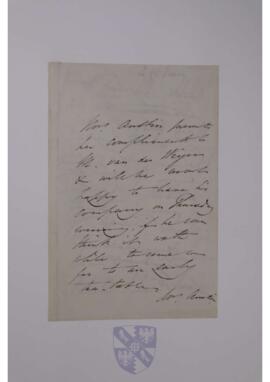 Mrs Austin presents
her compliments to
M. van de Weyer
& will be most
happy to have his
company on Thursday
evening if he can
think it worth
while to come so
far to an early
tea-table.
Mrs Austin